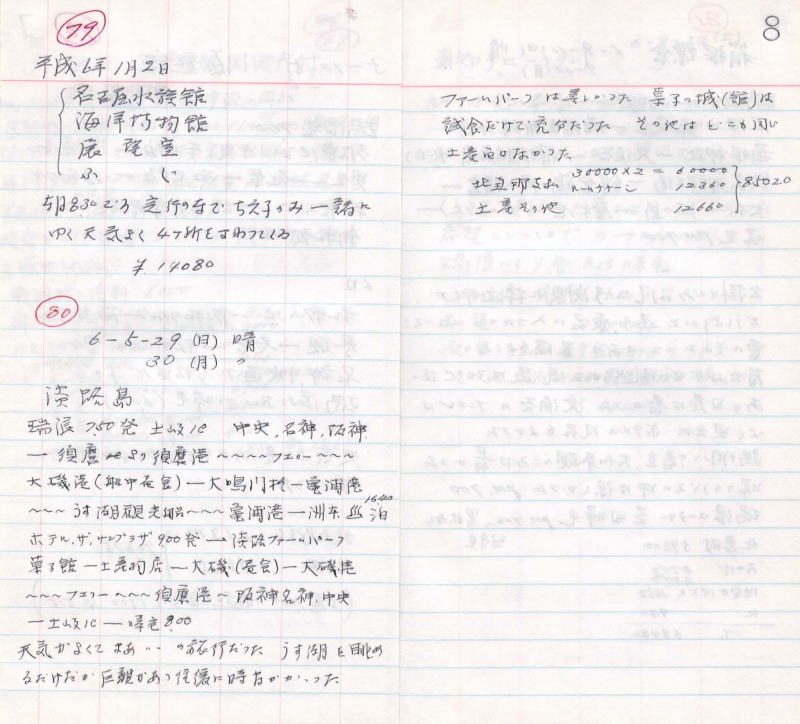 79
平成6年1月2日
名古屋水族館
海洋博物館
展望室
ふじ
朝8.30でる 定行の車で ちえ子のみ 一諸に
ゆく 天気よく 4ヶ所をまわってくる
¥14080
80
6-5-29(日) 晴
30(月) 〃
淡路島
瑞浪 7.50発 土岐IC 中央、名神、阪神、
―須磨 より須磨港~~~~フェリー~~~
大磯港(船中昼食)―大鳴門橋―亀浦港
~~~うず潮観光船~~~亀浦港―洲本 泊 1640
ホテル、ザ、サンプラザ 900発―淡路ファームパーク
菓子館―土産物店―大磯(昼食)―大磯港
~~~フェリー~~~須磨港~阪神名神、中央
―土岐IC―帰宅8.00
天気がよくてまあ‥の旅行だった うず潮を眺め
るだけだが巨観があつ 往復に時間がかゝった
8
ファームパークは美しかった 菓子の城(館)は
試食だけで充分だった その他はどこも同じ
土産品ばかった
30000×2=60000
12360
土産その他 12660
85020